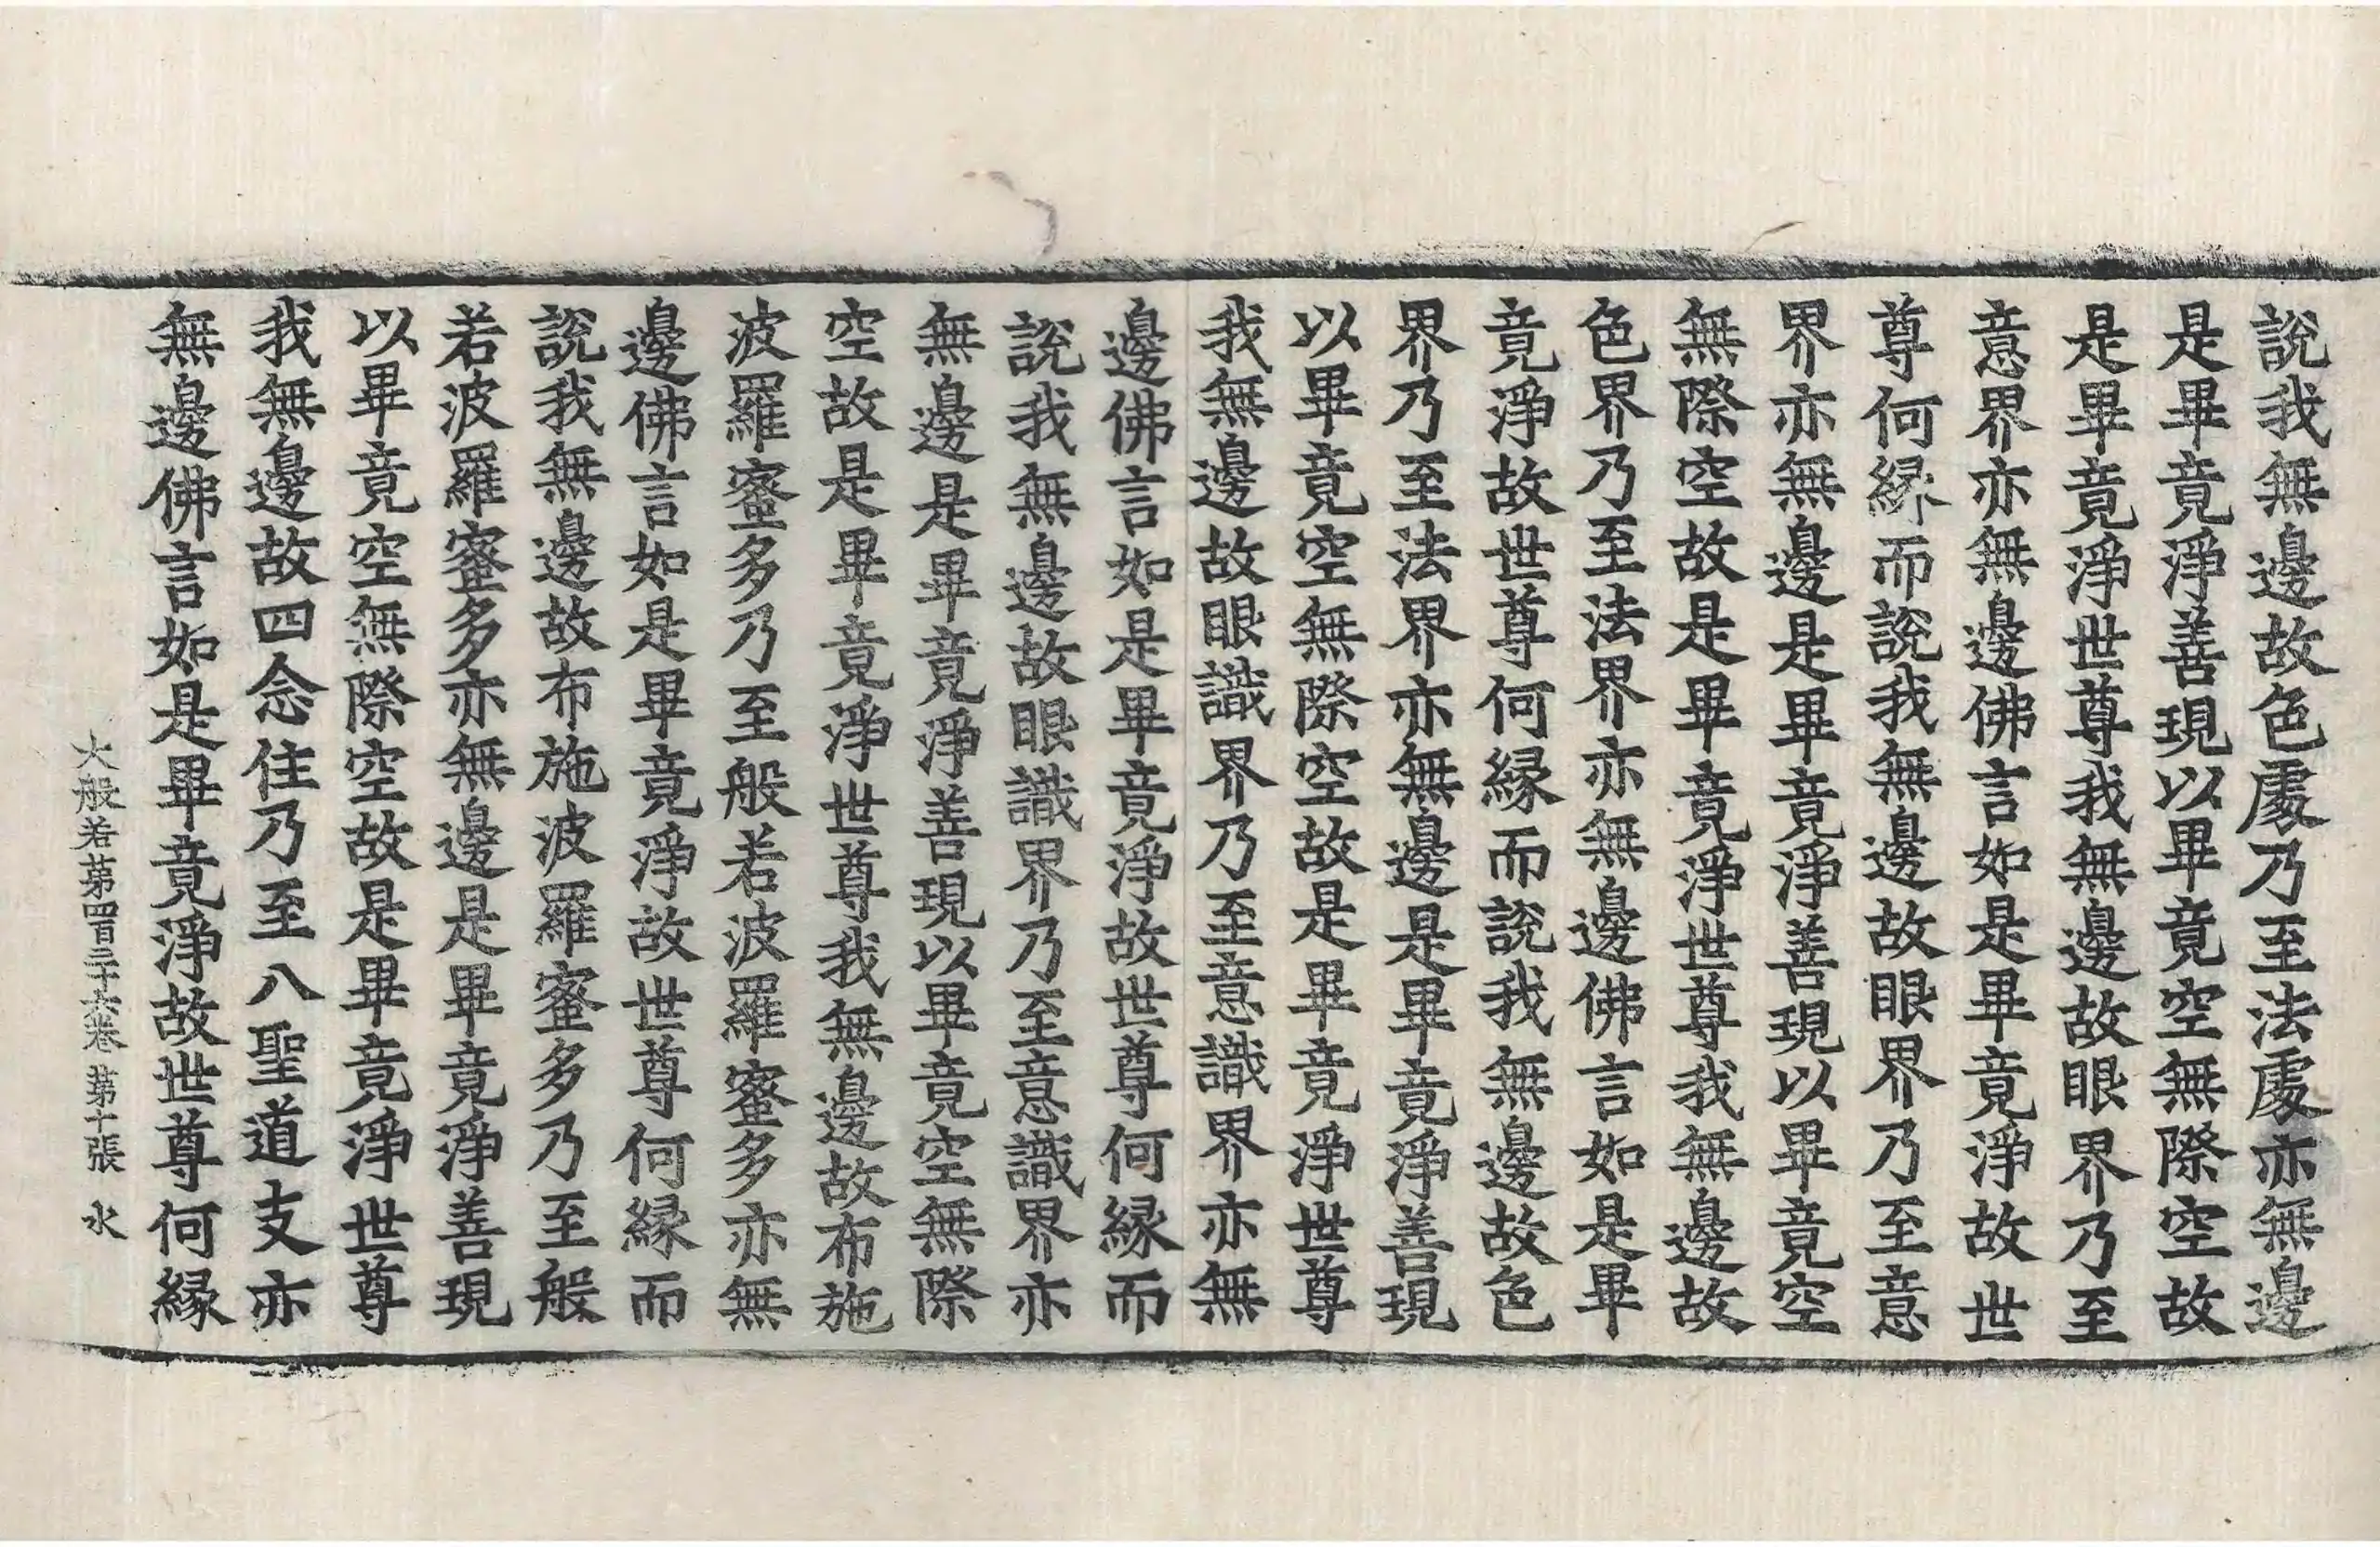 說我無邊故色處乃至法處亦無邊
是畢竟淨善現以畢竟空無際空故
是畢竟淨世尊我無邊故眼界乃至
意界亦無邊佛言如是畢竟淨故世
尊何緣而說我無邊故眼界乃至意
界亦無邊是畢竟淨善現以畢竟空
無際空故是畢竟淨世尊我無邊故
色界乃至法界亦無邊佛言如是畢
竟淨故世尊何緣而說我無邊故色
界乃至法界亦無邊是畢竟淨善現
以畢竟空無際空故是畢竟淨世尊
我無邊故眼識界乃至意識界亦無
邊佛言如是畢竟淨故世尊何緣而
說我無邊故眼識界乃至意識界亦
無邊是畢竟淨善現以畢竟空無際
空故是畢竟淨世尊我無邊故布施
波羅蜜多乃至般若波羅蜜多亦無
邊佛言如是畢竟淨故世尊何緣而
說我無邊故布施波羅蜜多乃至般
若波羅蜜多亦無邊是畢竟淨善現
以畢竟空無際空故是畢竟淨世尊
我無邊故四念住乃至八聖道支亦
無邊佛言如是畢竟淨故世尊何緣
大般若第四百三十六卷 第十張 水